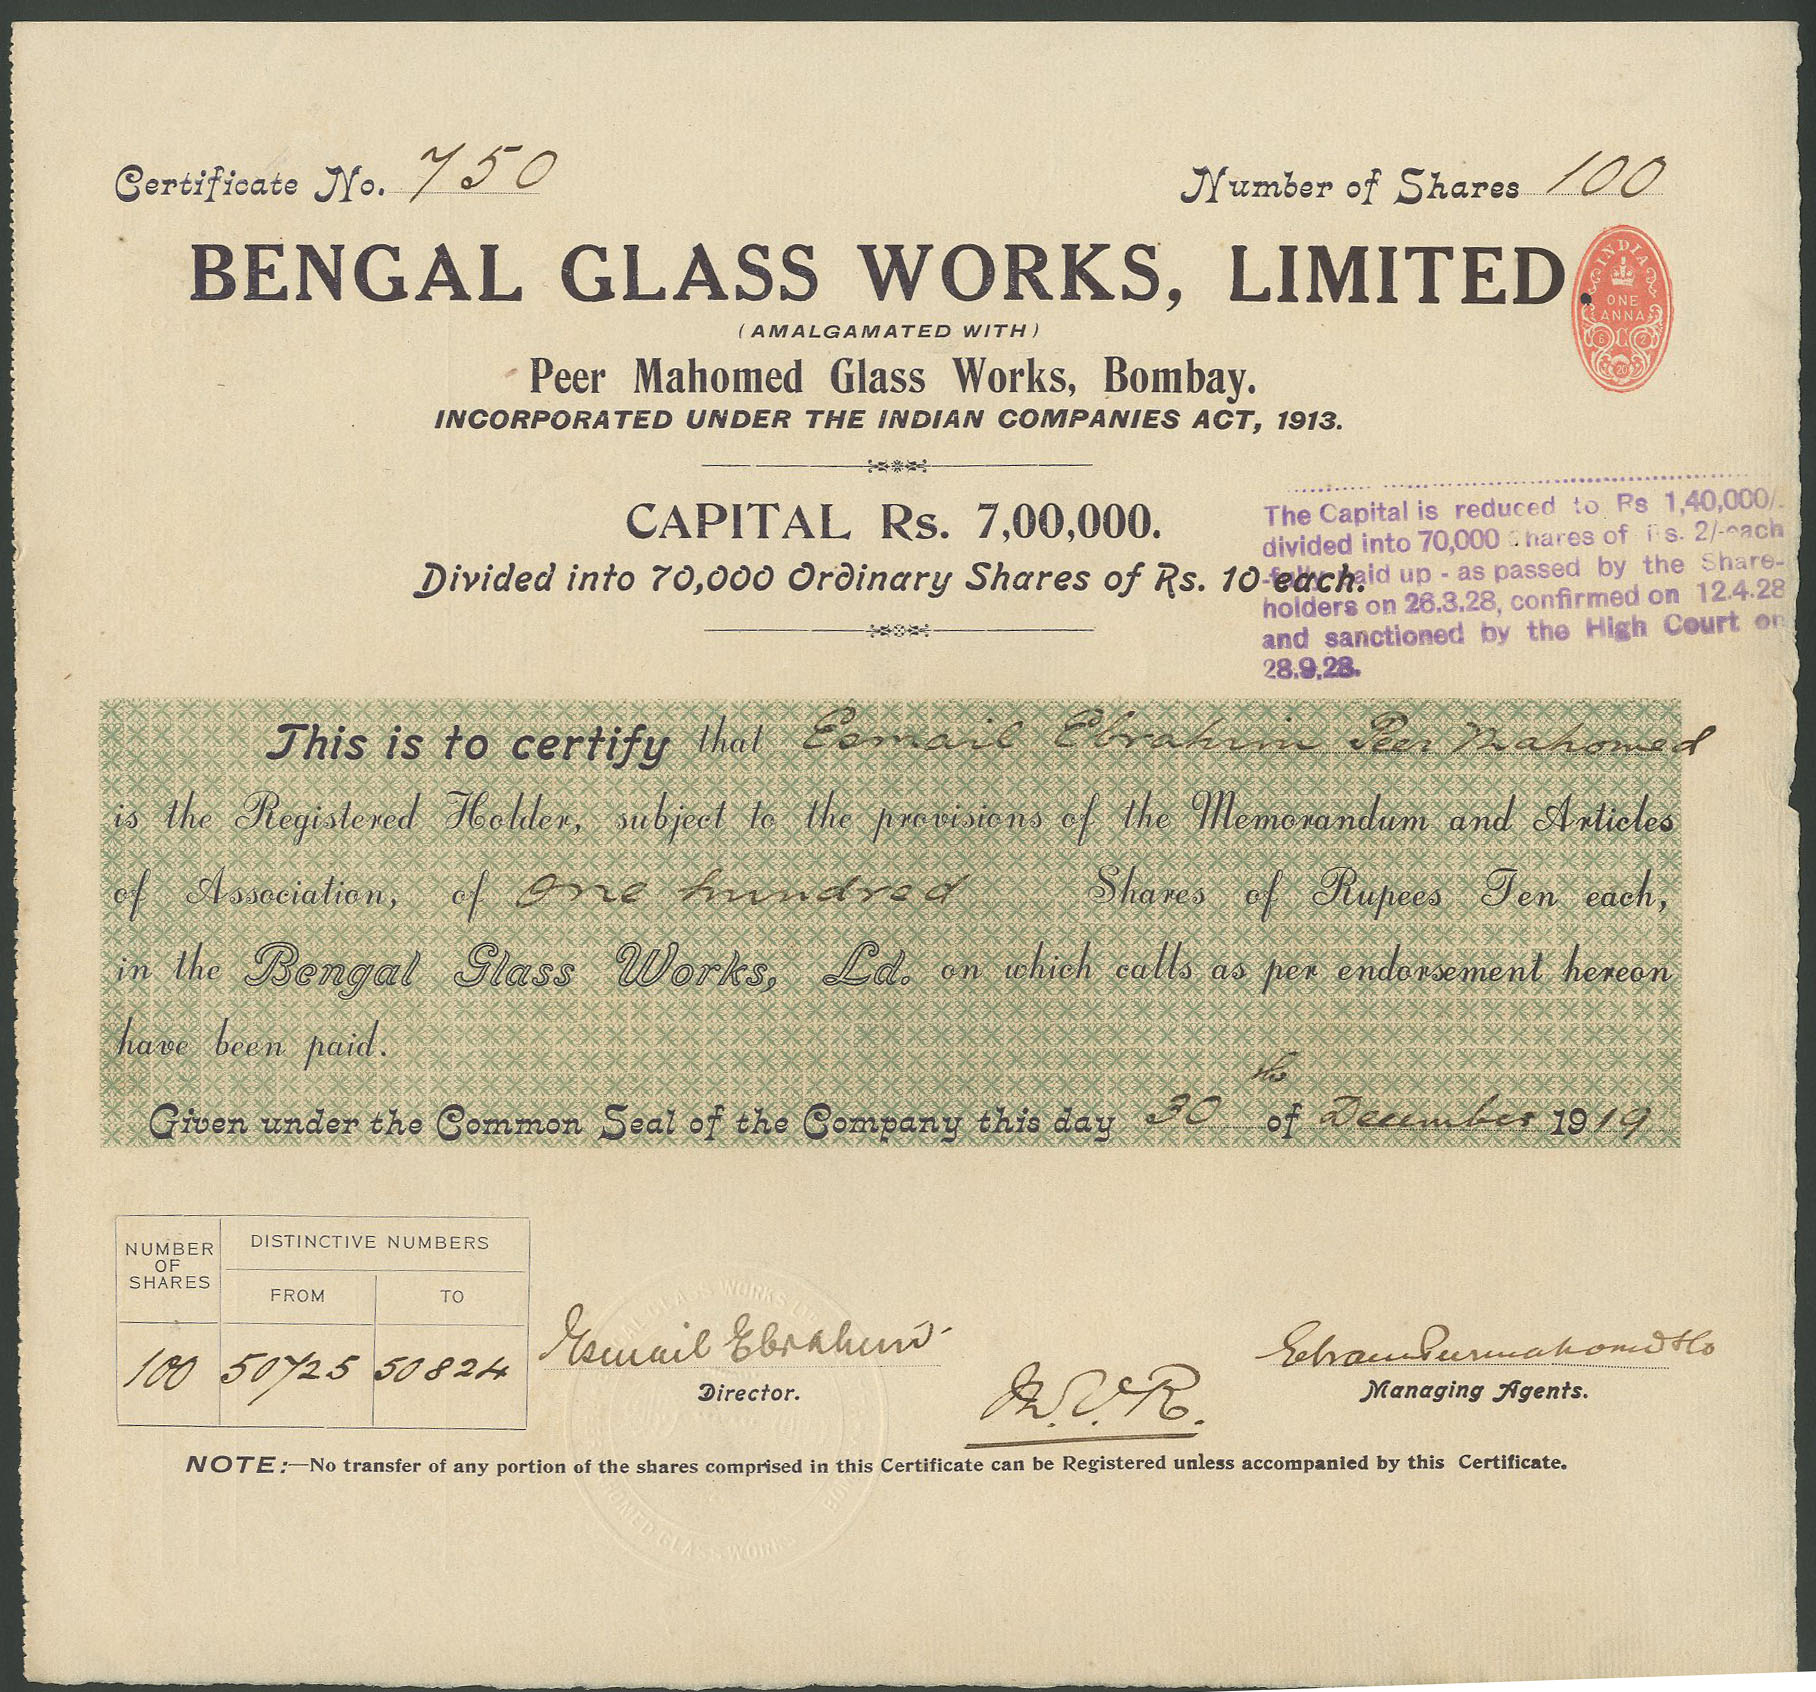 Certificate No. 750
Number of Shares 100
BENGAL GLASS WORKS, LIMITED.
INDIA
ONE
ANNA
C
6 2
20
(AMALGAMATED WITH)
Peer Mahomed Glass Works, Bombay.
INCORPORATED UNDER THE INDIAN COMPANIES ACT, 1913.
CAPITAL Rs. 7,00,000.
Divided into 70,000 Ordinary Shares of Rs. 10 each.
The Capital is reduced to Rs 1,40,000/-
divided into 70,000 Shares of Rs. 2/-each
-fully paid up - as passed by the Share-
holders on 26.3.28, confirmed on 12.4.28
and sanctioned by the High Court on
28.9.28.
This is to certify that Esmail Ebrahim Peer Mahomed
is the Registered Holder, subject to the provisions of the Memorandum and Articles
of Association, of One hundred Shares of Rupees Ten each,
in the Bengal Glass Works, Ld. on which calls as per endorsement hereon
have been paid.
Given under the Common Seal of the Company this day 30th of December 1919
NUMBER
OF
SHARES
DISTINCTIVE NUMBERS
FROM TO
100 50725 50824
Esmail Ebrahim
Director.
Managing Agents.
NOTE:—No transfer of any portion of the shares comprised in this Certificate can be Registered unless accompanied by this Certificate.
GLASS WORKS
GLASS WORKS